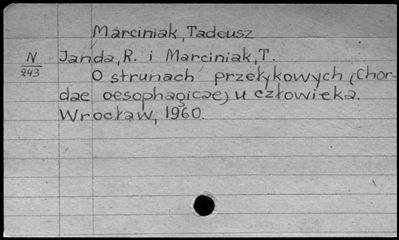 Marciniak, Tadeusz
N
243
Janda, R. i Marciniak, T.
O strunach przełykowych (Chor-
dae oesophagicae) u człowieka.
Wrocław, 1960.